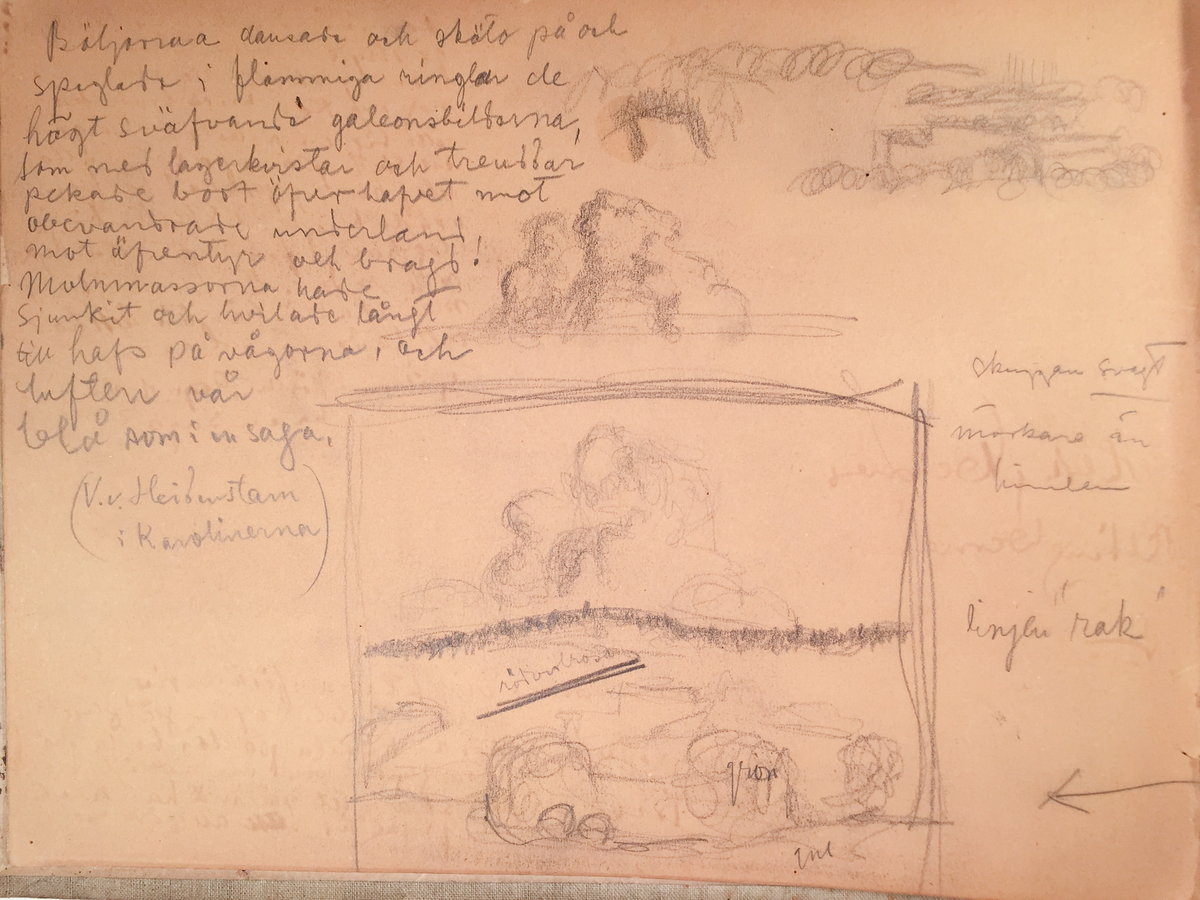 Böljorna dansade och sköto på och
speglade i flammiga ringlar de
högt sväfvande galeonsbilderna,
som med lagerkvistar och treuddar
pekade bort öfver hafvet mot
obevandrade underland,
mot äfventyr och bragd!
Molnmassorna hade
sjunkit och hvilade långt
till hafs på vågorna, och
luften var
blå som i en saga.
(V. v. Heidenstam
i Karolinerna)
skuggan svagt
mörkare än
himlen
linjen "rak"
grön
gul